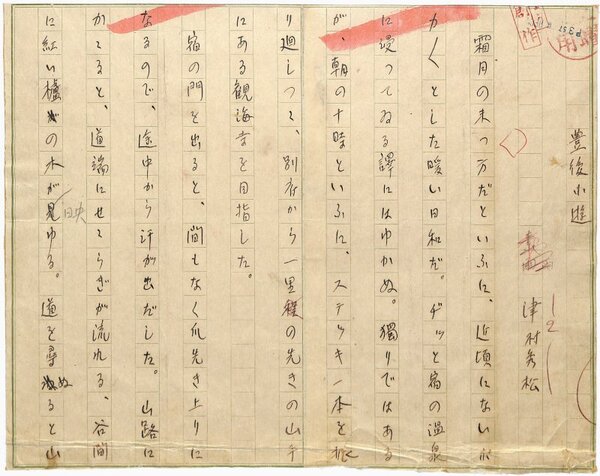 豊後小遊
津村秀松
霜月の末つ方だといふに、近頃にないポ
カ〱とした暖い日和だ。ヂッと宿の温泉
に浸つてゐる譯にはゆかぬ。獨りではある
が、朝の十時といふに、ステッキ一本を振
り廻しつゝ、別府から一里程の先きの山手
にある観海寺を目指した。
宿の門を出ると、間もなく爪先き上りに
なるので、途中から汗が出だした。山路に
かゝると、道端にせゝらぎが流れる、谷間
に紅い櫨の木が見ゆる。道を尋ぬると山
映